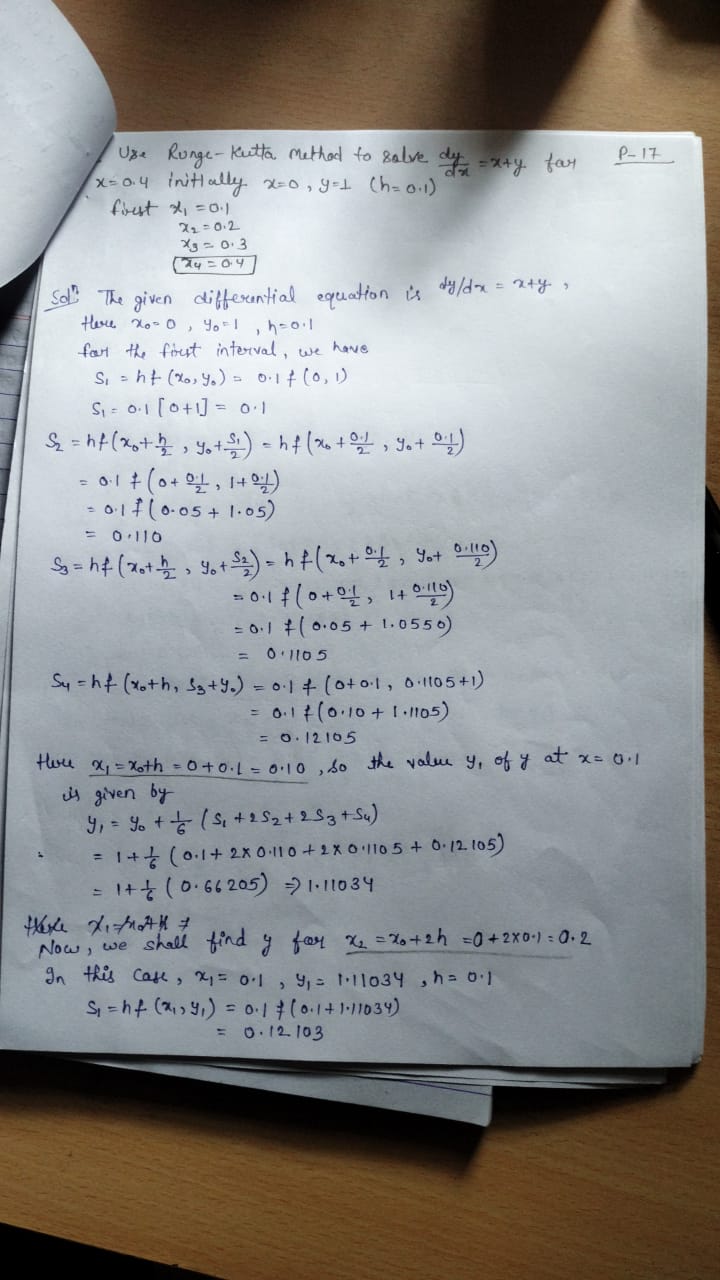 Use Runge-Kutta Method to solve dy/dx = x+y for P-17
x=0.4 initially x=0, y=1 (h=0.1)
first x₁ = 0.1
x₂ = 0.2
x₃ = 0.3
x₄ = 0.4
Solⁿ: The given differential equation is dy/dx = x+y,
Here x₀=0, y₀=1, h=0.1
for the first interval, we have
S₁ = hf(x₀, y₀) = 0.1 f(0, 1)
S₁ = 0.1 [0+1] = 0.1
S₂ = hf(x₀+h/2, y₀+S₁/2) = hf(x₀+0.1/2, y₀+0.1/2)
= 0.1 f(0+0.1/2, 1+0.1/2)
= 0.1 f(0.05 + 1.05)
= 0.110
S₃ = hf(x₀+h/2, y₀+S₂/2) = hf(x₀+0.1/2, y₀+0.110/2)
= 0.1 f(0+0.1/2, 1+0.110/2)
= 0.1 f(0.05 + 1.0550)
= 0.1105
S₄ = hf(x₀+h, S₃+y₀) = 0.1 f(0+0.1, 0.1105+1)
= 0.1 f(0.10 + 1.1105)
= 0.12105
Here x₁ = x₀+h = 0+0.1 = 0.10, so the value y₁ of y at x = 0.1
is given by
y₁ = y₀ + 1/6 (S₁ + 2S₂ + 2S₃ + S₄)
= 1 + 1/6 (0.1 + 2×0.110 + 2×0.1105 + 0.12105)
= 1 + 1/6 (0.66205) ⇒ 1.11034
Here x₁=x₀+h
Now, we shall find y for x₂ = x₀+2h = 0+2×0.1 = 0.2
In this case, x₁ = 0.1, y₁ = 1.11034, h = 0.1
S₁ = hf(x₁, y₁) = 0.1 f(0.1+1.11034)
= 0.12103